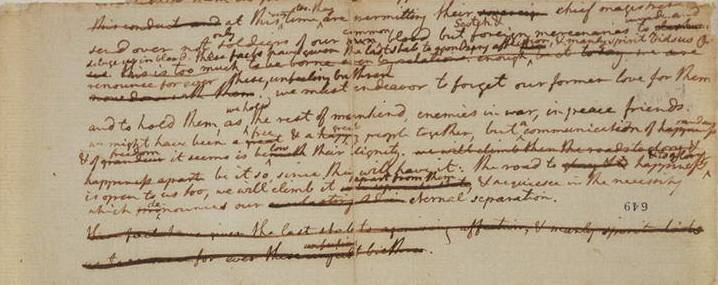 too, they
this conduct and at this time, are permitting their sovereign chief magistrate to
only common Scotch & invade and
send over not soldiers of our own blood but foreign mercenaries to
deluge us in blood. these facts have given the last stab to agonizing affection, & manly spirit bids us to
this is too much to be borne even by relations. enough
renounce for ever these unfeeling brethren
, we must endeavor to forget our former love for them
we hold
and to hold them, as the rest of mankind, enemies in war, in peace friends.
free great
we might have been a great & a happy people together, but a communication of happiness
freedom low
& of grandeur it seems is beneath their dignity. we will climb then the roads to glory &
& to glory
happiness apart be it so, since they will have it. the road to happiness
apart from them
is open to us too, we will climb it & acquiesce in the necessity
de
which pronounces our everlasting Adieu eternal separation.
649
these facts have given the last stab to agonizing affection, & manly spirit bids
unfeeling
us to renounce for ever these unjust brethren.